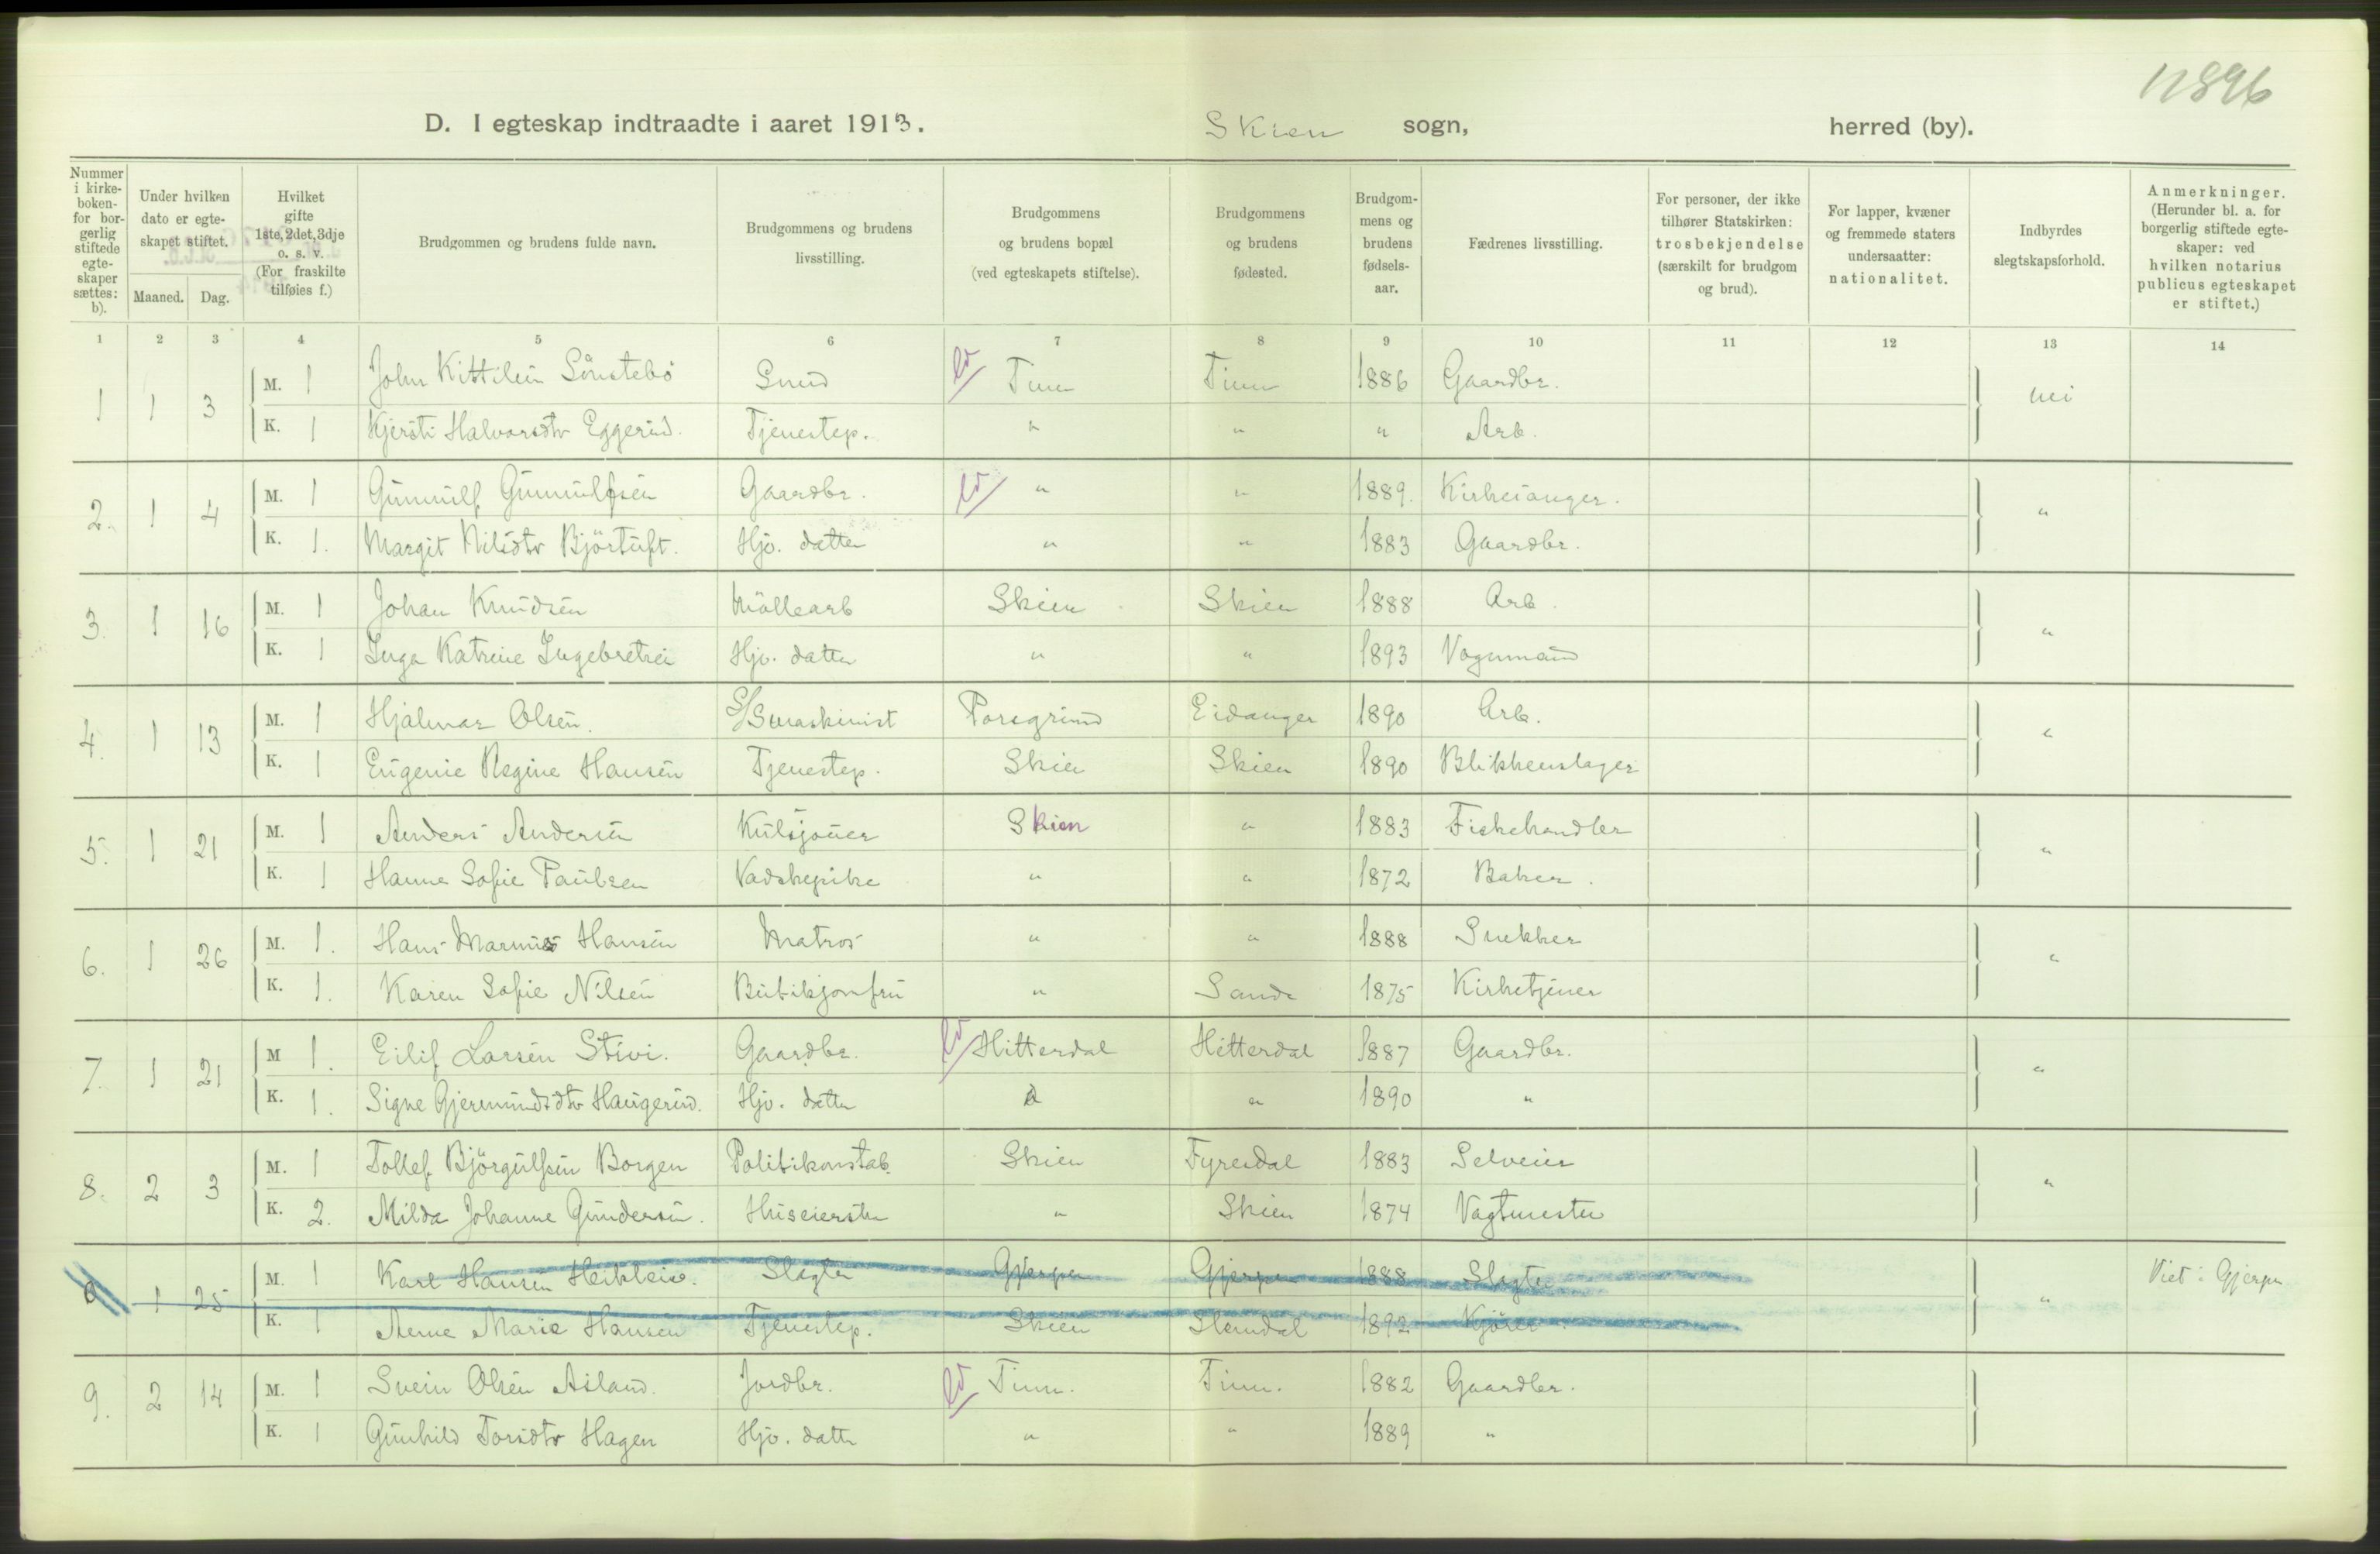 11896
D. I egteskap indtraadte i aaret 1913. Skien sogn, herred (by).
Nummer i kirkeboken for borgerlig stiftede egteskaper sættes: b).
Under hvilken dato er egteskapet stiftet.
Maaned. Dag.
Hvilket gifte 1ste, 2det, 3dje o. s. v. (For fraskilte tilføies f.)
Brudgommen og brudens fulde navn.
Brudgommens og brudens livsstilling.
Brudgommens og brudens bopæl (ved egteskapets stiftelse).
Brudgommens og brudens fødested.
Brudgommens og brudens fødselsaar.
Fædrenes livsstilling.
For personer, der ikke tilhører Statskirken: trosbekjendelse (særskilt for brudgom og brud).
For lapper, kvæner og fremmede staters undersaatter: nationalitet.
Indbyrdes slegtskapsforhold.
Anmerkninger. (Herunder bl. a. for borgerlig stiftede egteskaper: ved hvilken notarius publicus egteskapet er stiftet.)
1 2 3 4 5 6 7 8 9 10 11 12 13 14
1 1 3 M. 1 John Kittilsen Sønstebö Smed Tinn Tinn 1886 Gaardbr. nei
K. 1 Kjersti Halvorsdtr Eggerud. Tjenestep. " " " Arb.
2. 1 4 M. 1 Gunnulf Gunnulfsen Gaardbr. " " 1889. Kirkesanger. "
K. 1. Margit Nilsdtr Björtuft. Hjv. datter " " 1883 Gaardbr.
3. 1 16 M. 1 Johan Knudsen Möllearb Skien Skien 1888 Arb. "
K. 1 Inga Katrine Ingebretsen Hjv. datter " " 1893 Vognmand
4. 1 13 M. 1 Hjalmar Olsen. S/Smaskinist Porsgrund Eidanger 1890 Arb. "
K. 1 Eugenie Regine Hansen Tjenestep. Skien Skien 1890 Blikkenslager
5. 1 21 M. 1 Anders Andersen Kulsjouer Skien " 1883 Fiskehandler "
K. 1 Hanna Sofie Paulsen Vadskepike " " 1872 Baker.
6. 1 26 M. 1. Hans Marinus Hansen Matros " " 1888 Snekker "
K. 1. Karen Sofie Nilsen Butikjomfru " Sande 1875 Kirketjener
7. 1 21 M 1. Eilif Larsen Stivi. Gaardbr. Hitterdal Hitterdal 1887 Gaardbr. "
K. 1. Signe Gjermundsdtr Haugerud. Hjv. datter " " 1890 "
8. 2 3 M. 1 Tollef Björgulfsen Borgen Politikonstab. Skien Fyresdal 1883 Selveier "
K. 2. Milda Johanne Gundersen. Huseierske " Skien 1874 Vagtmester
9 1 25 M. 1 Karl Hansen Slagter Gjerpen Gjerpen 1888 Slagter " Viet i Gjerpen
K. 1 Anne Marie Hansen Tjenestep. Skien Slemdal 1892 Kjörer
9. 2 14 M. 1 Svein Olsen Aaland. Jordbr. Tinn. Tinn. 1882 Gaardbr.
K. 1 Gunhild Torsdtr Hagen Hjv. datter " " 1889 "